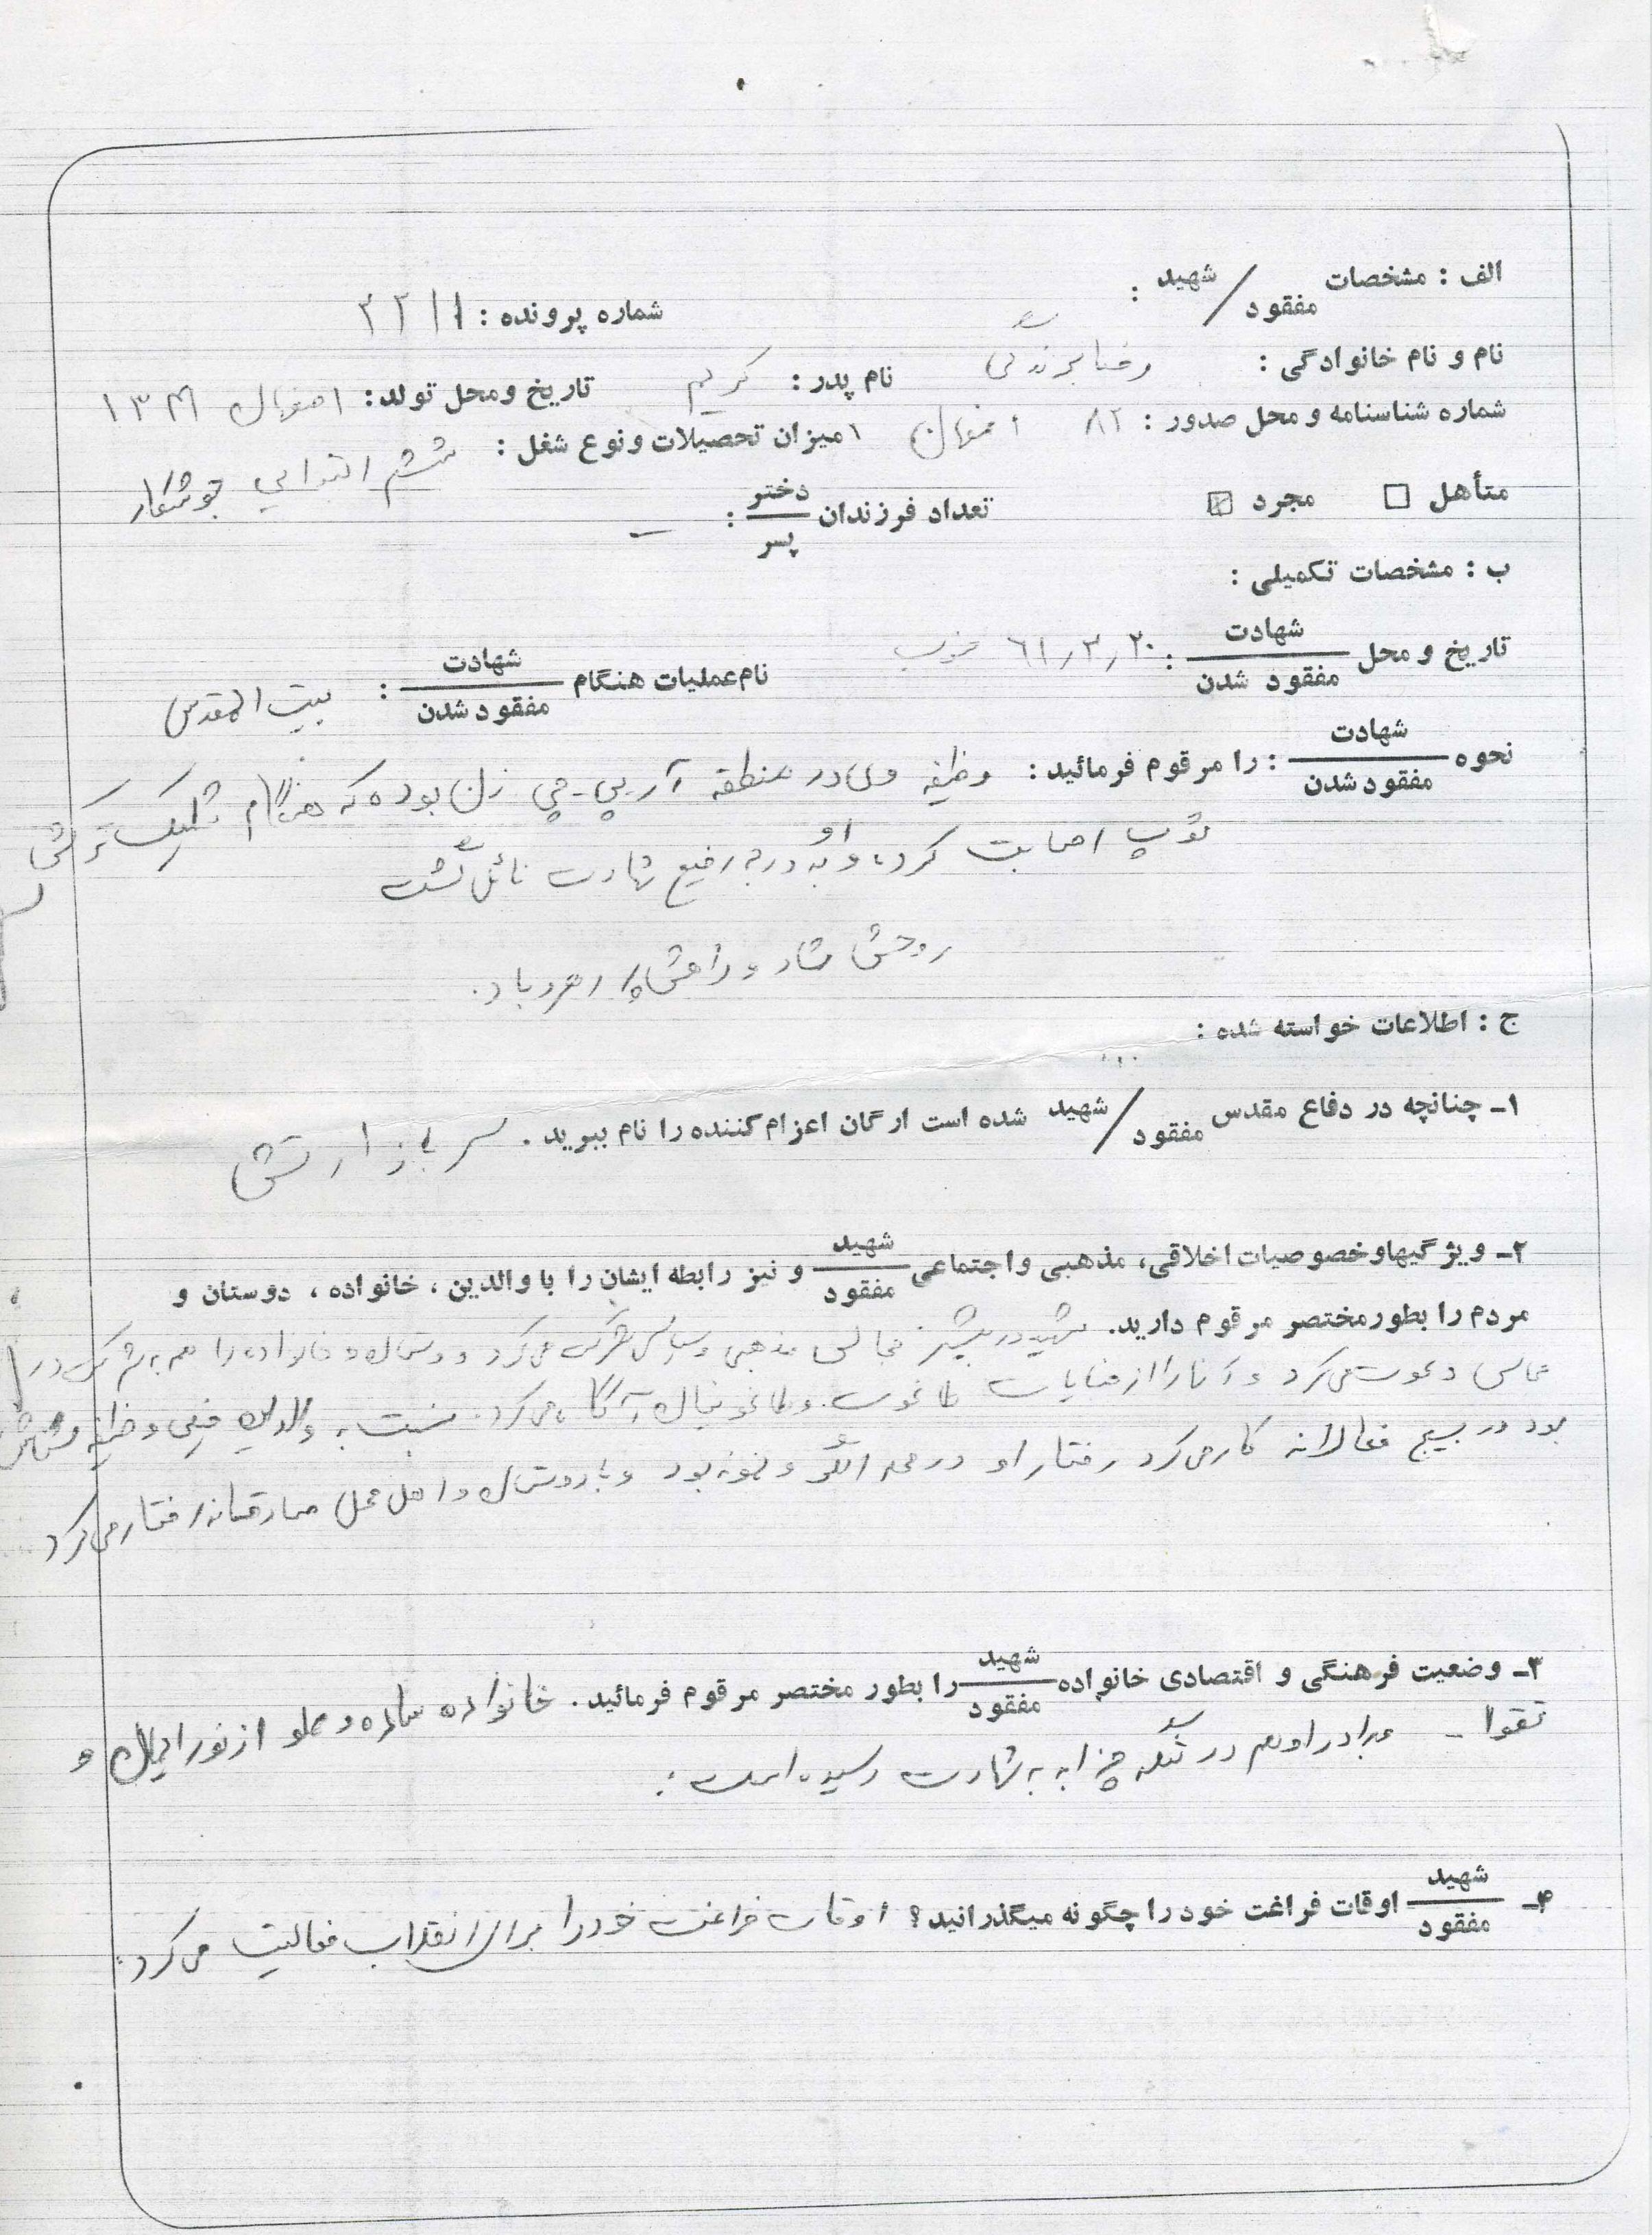 الف : مشخصات شهید / مفقود :
شماره پرونده : ۲۲۱۱
نام و نام خانوادگی : رضا برندگی نام پدر : کریم تاریخ ومحل تولد : اصفهان
شماره شناسنامه و محل صدور : ۸۲ اصفهان میزان تحصیلات ونوع شغل : ششم ابتدایی جوشکار
متأهل □ مجرد ☑ تعداد فرزندان دختر / پسر : –
ب : مشخصات تکمیلی :
تاریخ و محل شهادت / مفقود شدن : ۶۱٫۳٫۲۰ جنوب نام عملیات هنگام شهادت / مفقود شدن : بیت المقدس
نحوه شهادت / مفقود شدن : را مرقوم فرمائید : وظیفه وی در منطقه آر.پی.جی زن بوده که هنگام شلیک ترکش
توپ اصابت کرد، و او به درجه رفیع شهادت نائل گشت
روحش شاد و راهش پر رهرو باد.
ج : اطلاعات خواسته شده :
۱ـ چنانچه در دفاع مقدس شهید / مفقود شده است ارگان اعزام کننده را نام ببرید . سرباز ارتش
۲ـ ویژگیهاوخصوصیات اخلاقی، مذهبی واجتماعی شهید / مفقود و نیز رابطه ایشان را با والدین ، خانواده ، دوستان و
مردم را بطورمختصر مرقوم دارید. شهید در بیشتر مجالس مذهبی و سیاسی شرکت می‌کرد و دوستان و خانواده را هم به شرکت در
مجالس دعوت می‌کرد و آنها را از جنایات طاغوت و طاغوتیان آگاه می‌کرد. نسبت به والدین خیلی وظیفه شناس
بود در بسیج فعالانه کار می‌کرد رفتار او در محله الگو و نمونه بود و با دوستان و اهل محل صادقانه رفتار می‌کرد
۳ـ وضعیت فرهنگی و اقتصادی خانواده شهید / مفقود را بطور مختصر مرقوم فرمائید . خانواده ساده و مملو از نور ایمان و
تقوا - برادر او هم در تنگه چزابه به شهادت رسیده است .
۴ـ شهید / مفقود اوقات فراغت خود را چگونه میگذرانید؟ اوقات فراغت خود را برای انقلاب فعالیت می‌کرد.